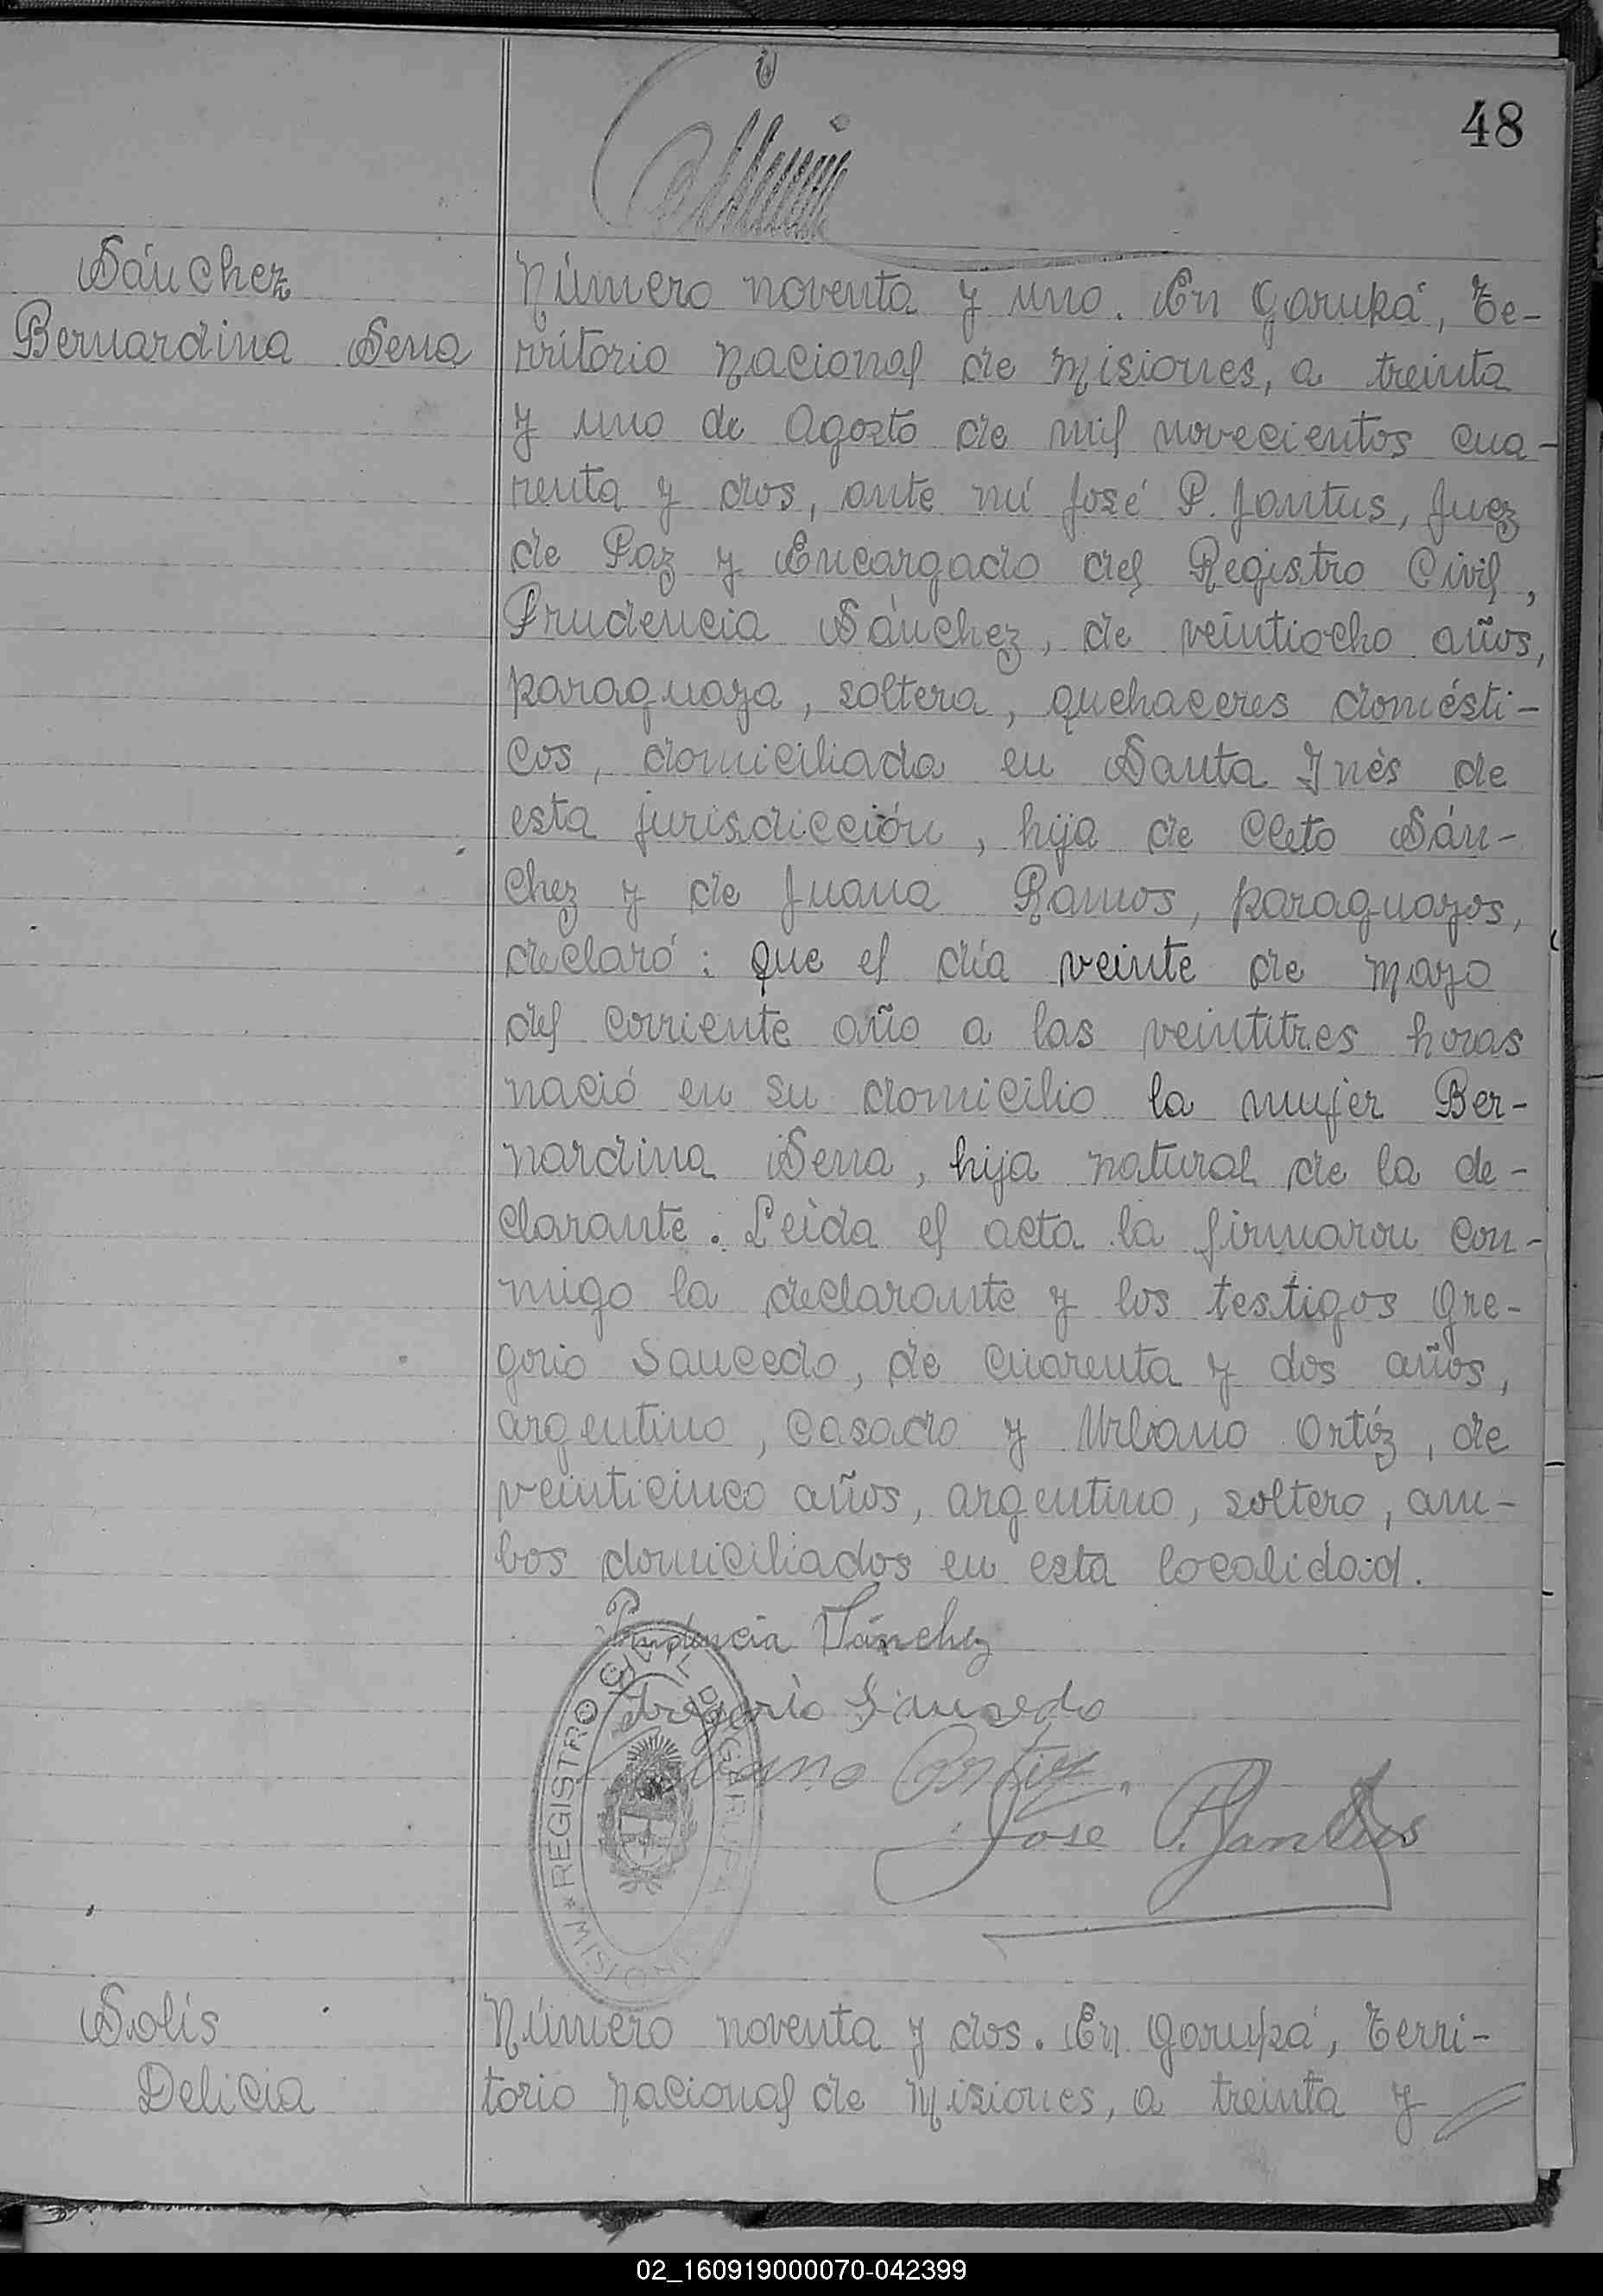 48
Sánchez
Bernardina Sena
Número noventa y uno. En Garupá, Te-
rritorio Nacional de Misiones, a treinta
y uno de Agosto de mil novecientos cua-
renta y dos, ante mí José P. Jantus, Juez
de Paz y Encargado del Registro Civil,
Prudencia Sánchez, de veintiocho años,
paraguaya, soltera, quehaceres domésti-
cos, domiciliada en Santa Inés de
esta jurisdicción, hija de Cleto Sán-
chez y de Juana Ramos, paraguayos,
declaró: que el día veinte de mayo
del corriente año a las veintitres horas
nació en su domicilio la mujer Ber-
nardina Sena, hija natural de la de-
clarante. Leída el acta la firmaron con-
migo la declarante y los testigos Gre-
gorio Saucedo, de cuarenta y dos años,
argentino, casado y Urbano Ortíz, de
veinticinco años, argentino, soltero, am-
bos domiciliados en esta localidad.
Prudencia Sánchez
Gregorio Saucedo
Urbano Ortiz
José P. Jantus
REGISTRO CIVIL DE GARUPA
* MISIONES
Solís
Delicia
Número noventa y dos. En Garupá, Terri-
torio Nacional de Misiones, a treinta y
02_160919000070-042399